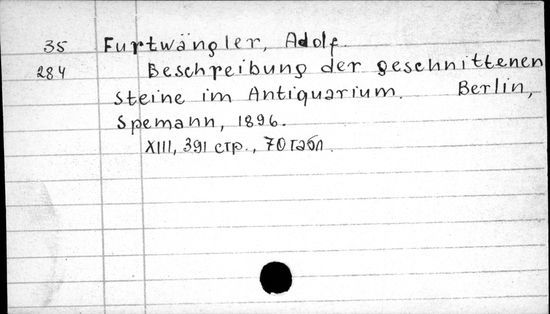 35 Furtwängler, Adolf.
284 Beschreibung der geschnittenen
Steine im Antiquarium. Berlin,
Spemann, 1896.
XIII, 391 стр., 70 табл.